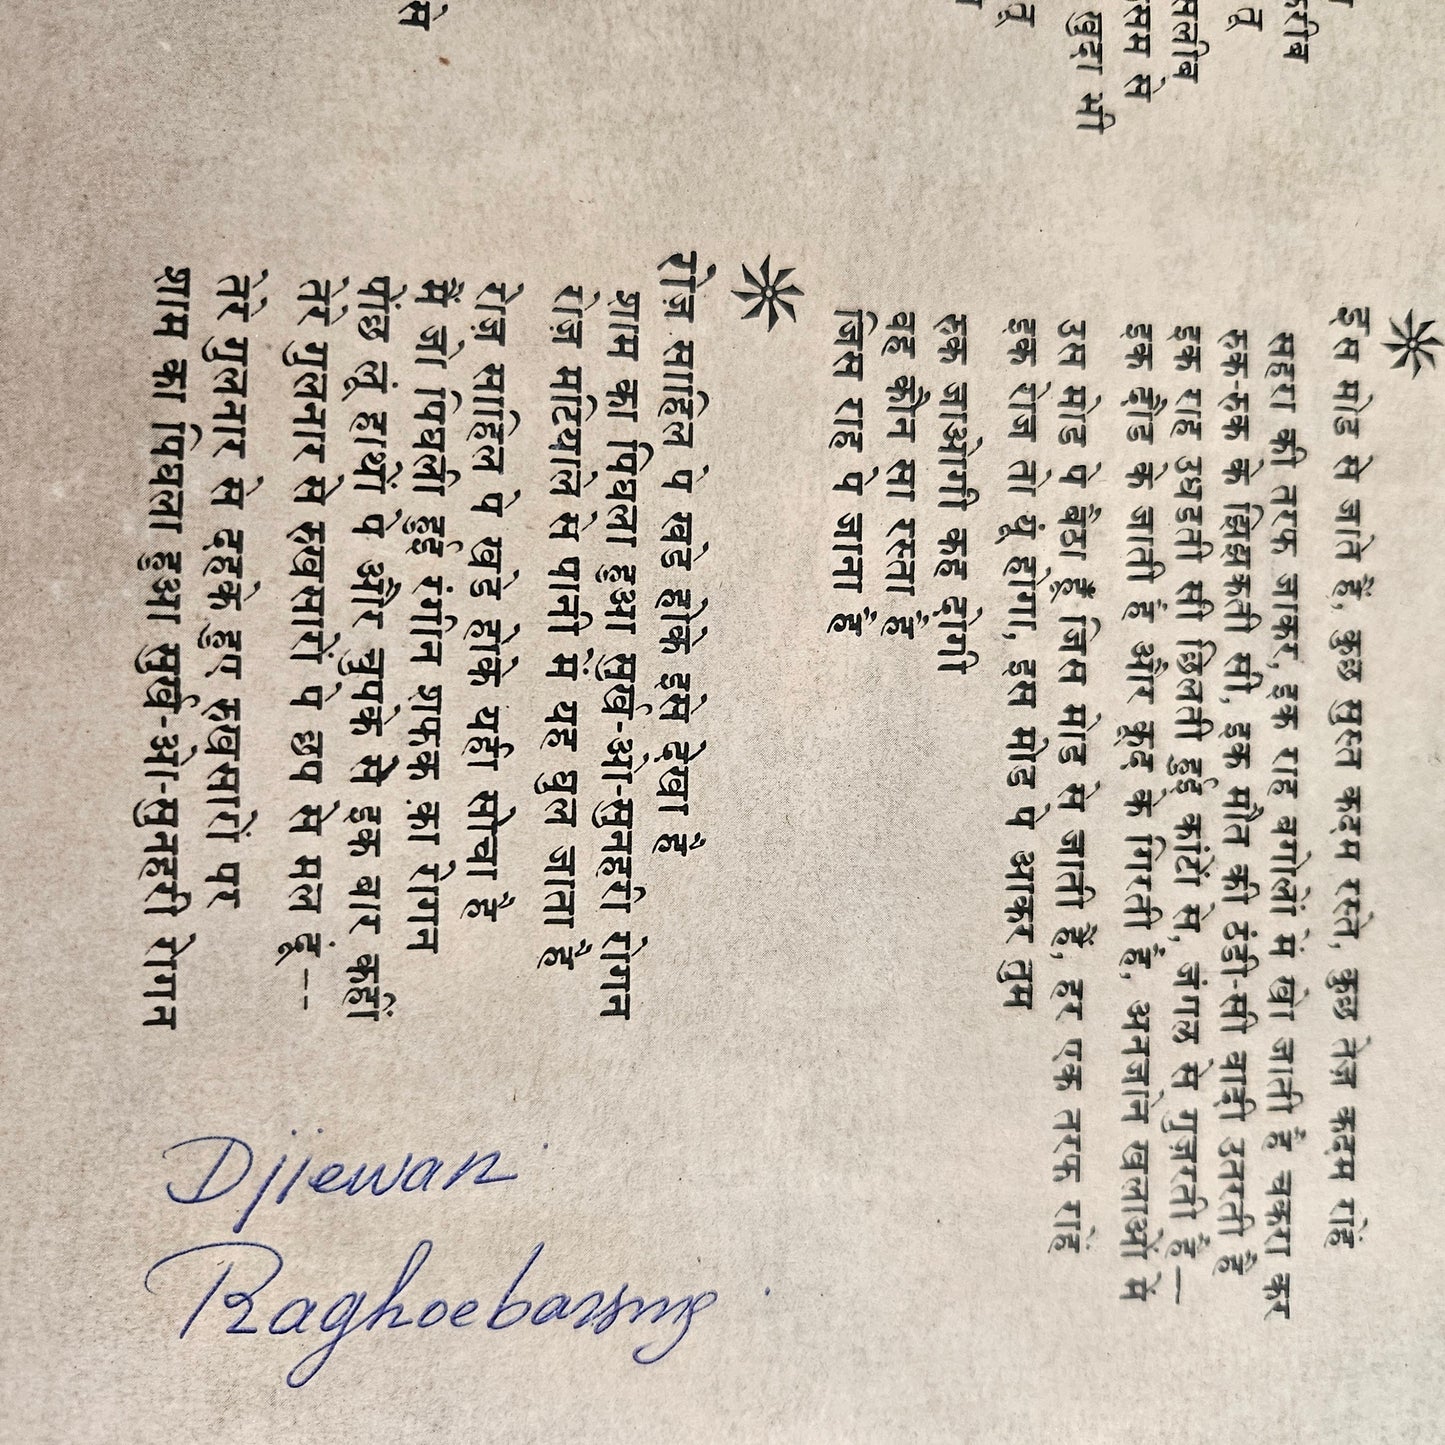 करीब
तू
सलीब
से
खुदा भी
तू
से
इस मोड़ से जाते हैं, कुछ सुस्त कदम रस्ते, कुछ तेज़ कदम राहें
सहरा की तरफ जाकर, इक राह बगोलों में खो जाती है चकरा कर
रुक-रुक के झिझकती सी, इक मौत की ठंडी-सी वादी उतरती है
इक राह उधड़ती सी छिलती हुई कांटों से, जंगल से गुज़रती है—
इक दौड़ के जाती है और कूद के गिरती है, अनजाने खलाओं में
उस मोड़ पे बैठा हूँ जिस मोड़ से जाती हैं, हर एक तरफ राहें
इक रोज तो यूं होगा, इस मोड़ पे आकर तुम
रुक जाओगी कह दोगी
वह कौन सा रस्ता है
जिस राह पे जाना है
रोज़ साहिल पे खड़े होके इसे देखा है
शाम का पिघला हुआ सुर्ख-ओ-सुनहरी रोगन
रोज़ मटियाले से पानी में यह घुल जाता है
रोज़ साहिल पे खड़े होके यही सोचा है
मैं जो पिघली हुई रंगीन शफक़ का रोगन
पोंछ लूं हाथों पे और चुपके से इक बार कहीं
तेरे गुलनार से रुखसारों पे छप से मल दूं--
तेरे गुलनार से दहके हुए रुखसारों पर
शाम का पिघला हुआ सुर्ख-ओ-सुनहरी रोगन
Djiewan
Raghoebarsing